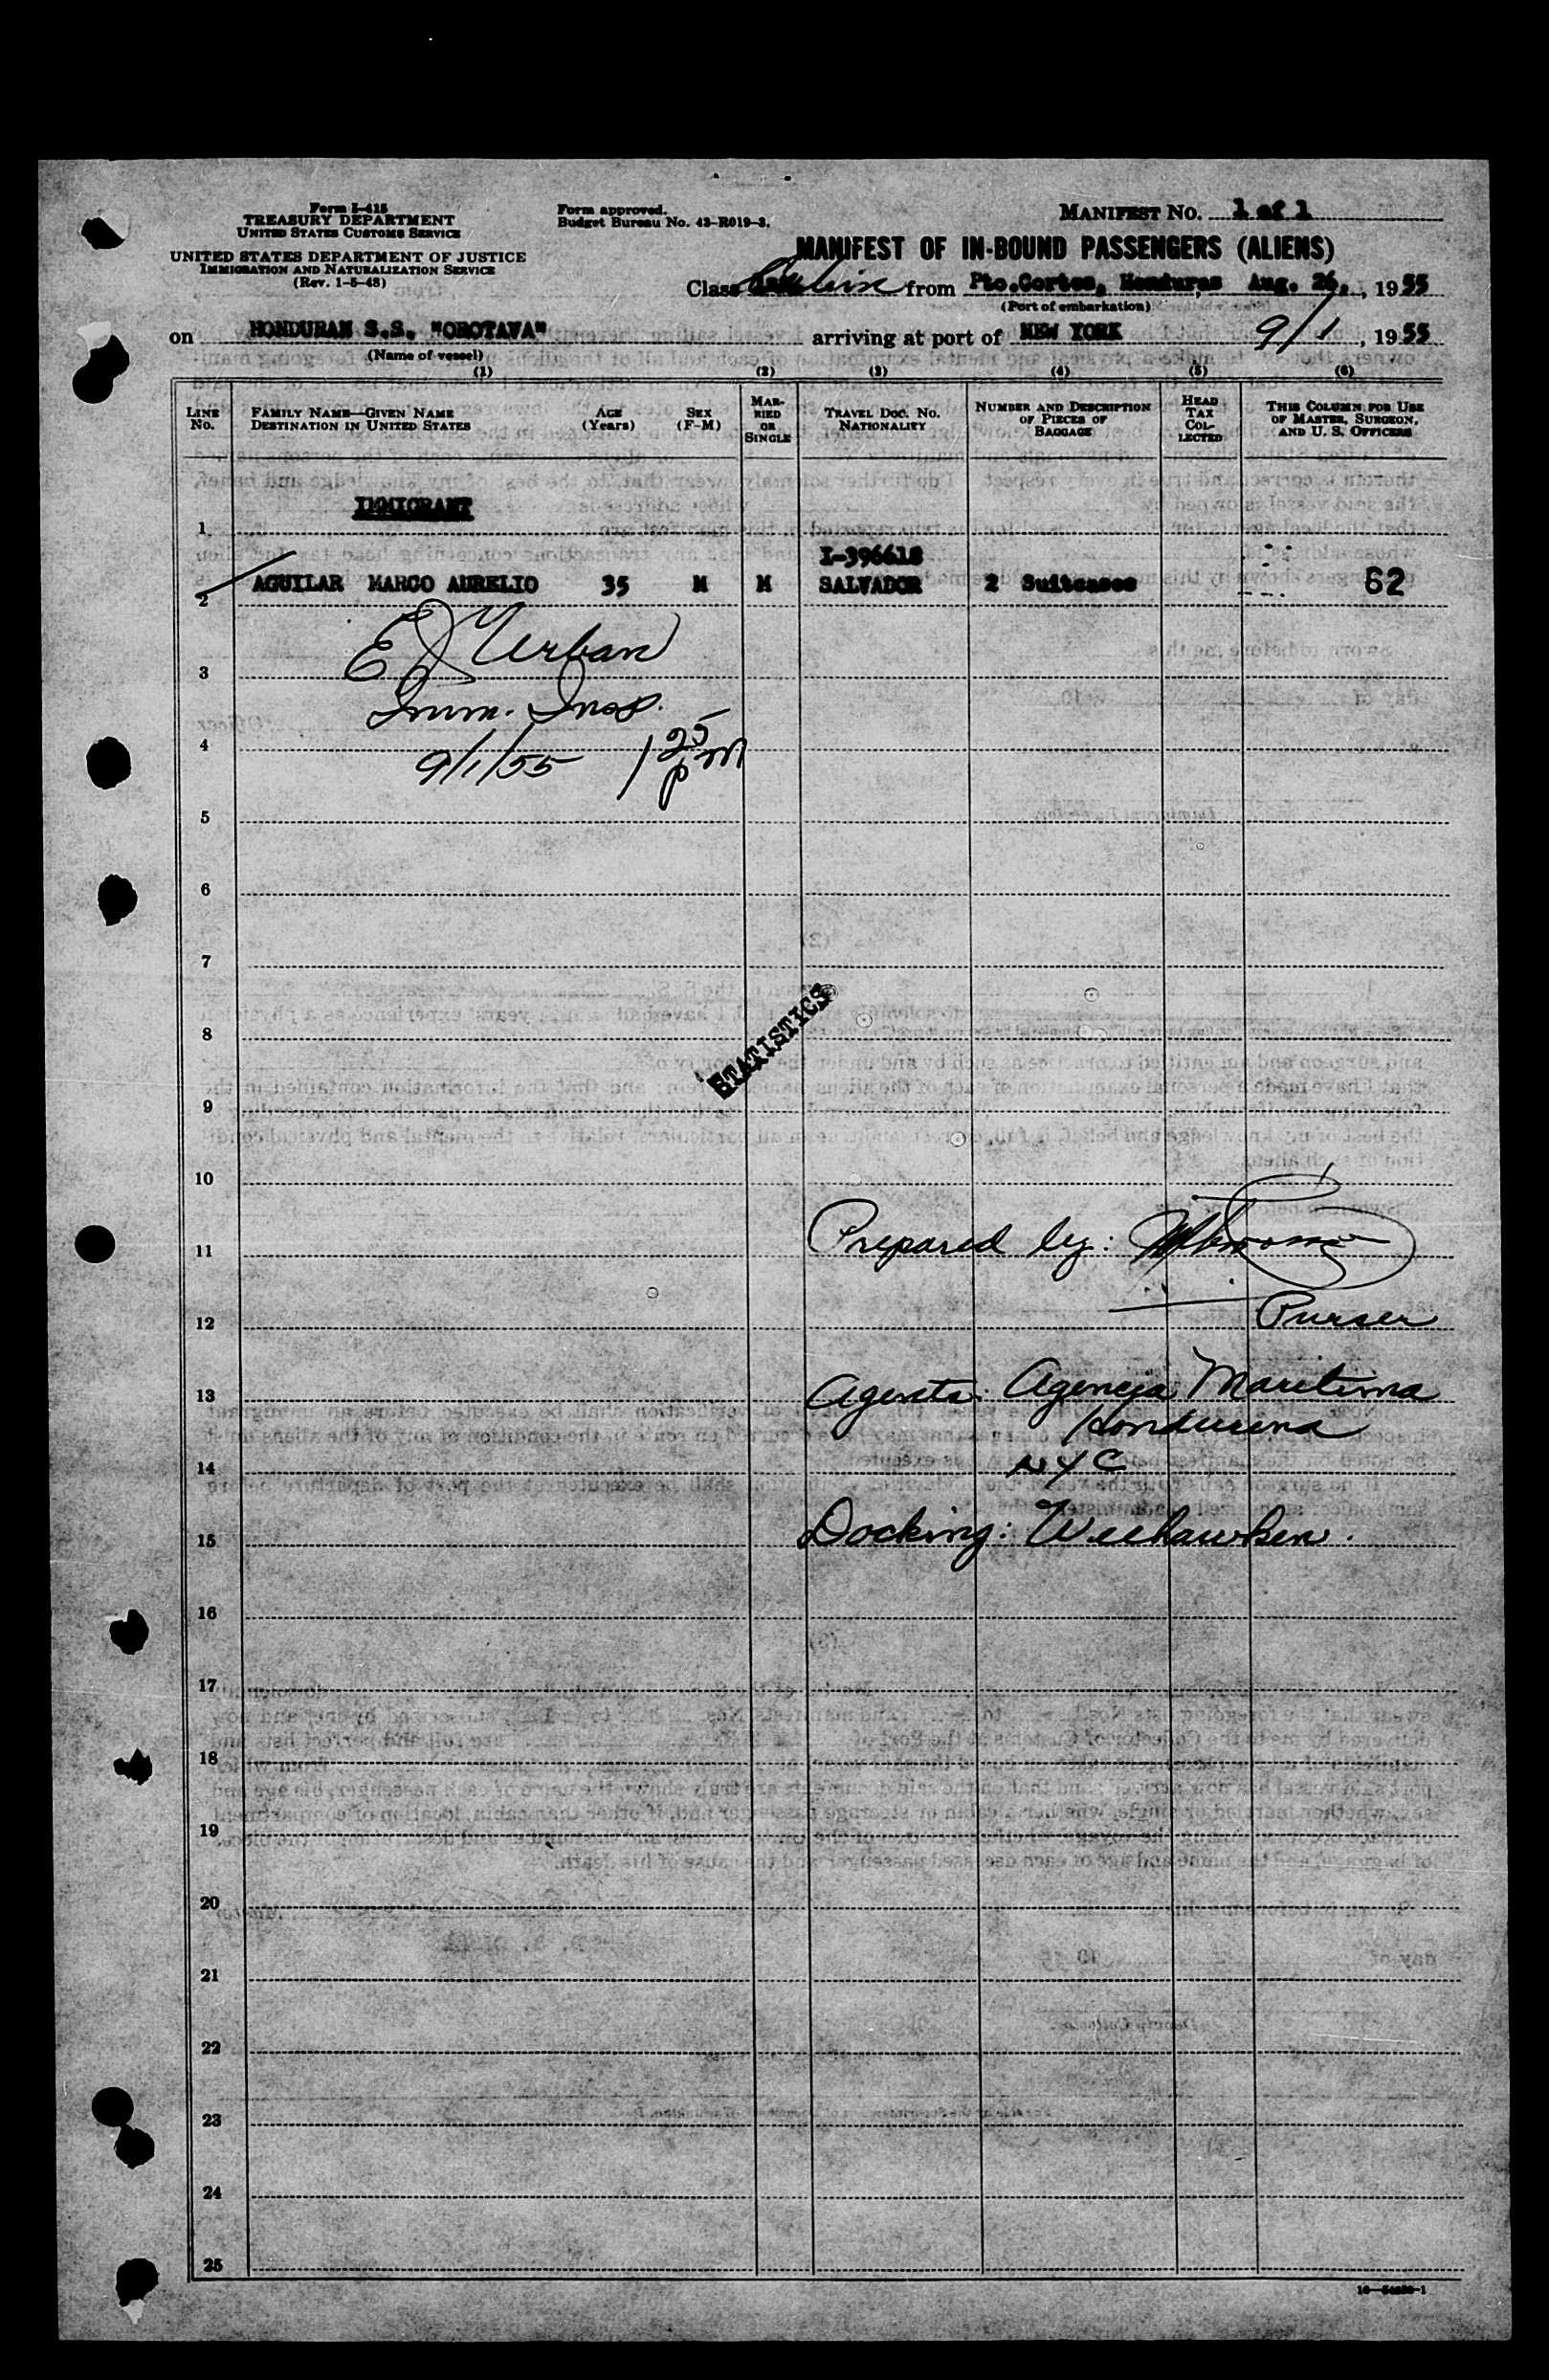 Form I-415
TREASURY DEPARTMENT
UNITED STATES CUSTOMS SERVICE
UNITED STATES DEPARTMENT OF JUSTICE
IMMIGRATION AND NATURALIZATION SERVICE
(Rev. 1-5-48)
Form approved.
Budget Bureau No. 43-R019-3.
MANIFEST NO. 1 of 1
MANIFEST OF IN-BOUND PASSENGERS (ALIENS)
Class Cabin from Pto.Cortes, Honduras Aug. 26, , 1955
(Port of embarkation)
on HONDURAN S.S. "OROTAVA" arriving at port of NEW YORK 9/1 , 1955
(Name of vessel)
(1) (2) (3) (4) (5) (6)
LINE No.
FAMILY NAME—GIVEN NAME
DESTINATION IN UNITED STATES
AGE (Years)
SEX (F-M)
MARRIED OR SINGLE
TRAVEL DOC. No.
NATIONALITY
NUMBER AND DESCRIPTION OF PIECES OF BAGGAGE
HEAD TAX COLLECTED
THIS COLUMN FOR USE OF MASTER, SURGEON, AND U. S. OFFICERS
IMMIGRANT
1
I-396618
2 AGUILAR MARCO AURELIO 35 M M SALVADOR 2 Suitcases 62
E J Urban
3
Imm. Insp.
4
9/1/55 1 25 pm
5
6
7
STATISTICS
8
9
10
11 Prepared by:
12 Purser
13 Agents: Agencia Maritima
Hondurena
14 NYC
15 Docking: Weehawken.
16
17
18
19
20
21
22
23
24
25